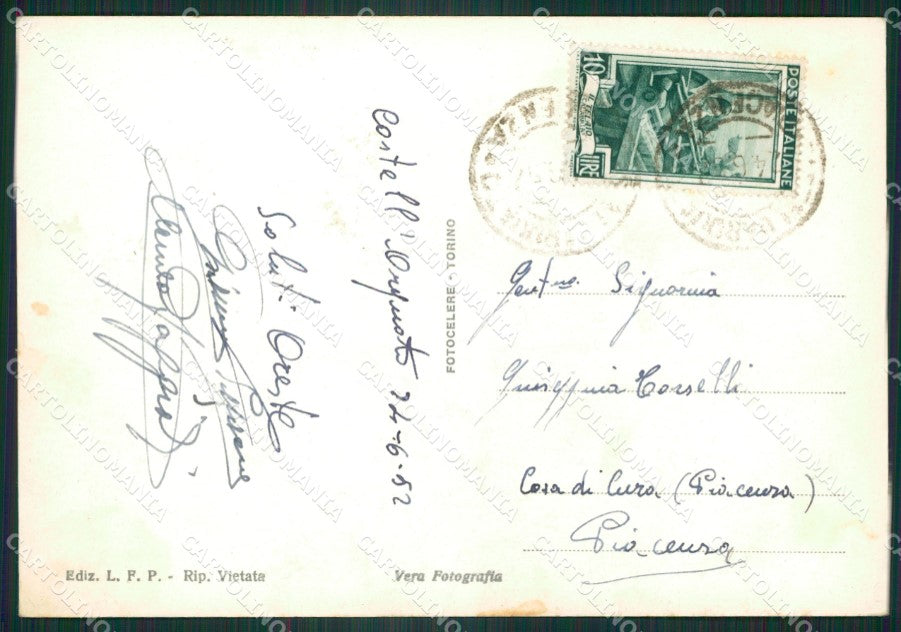 Castell'Arquato 22-6-52
Saluti Oreste
FOTOCELERE - TORINO
10 LIRE
POSTE ITALIANE
Gent.ma Signorina
Giuseppina Corselli
Casa di Cura (Piacenza)
Piacenza
Ediz. L. F. P. - Rip. Vietata
Vera Fotografia
CARTOLINOMANIA